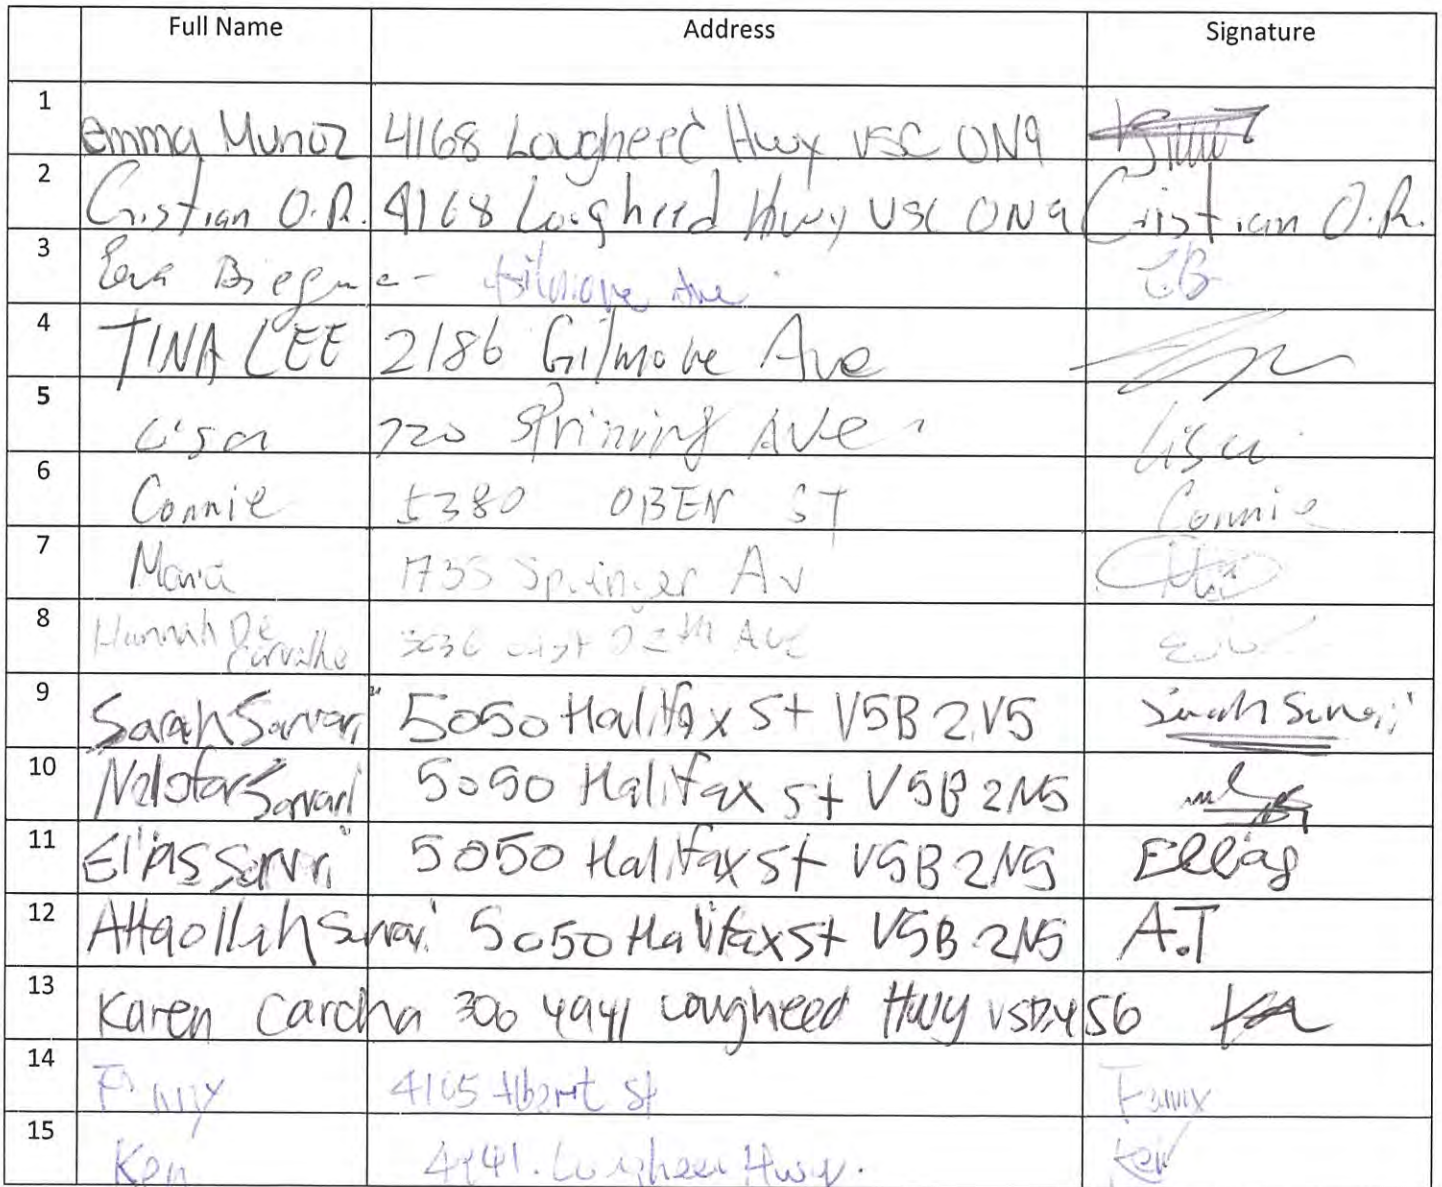 Full Name Address Signature
1 Emma Munoz 4168 Lougheed Hwy V5C 0N9
2 Cristian O.R. 4168 Lougheed Hwy V5C 0N9 Cristian O.R.
3 Eva Gilmore Ave EB
4 TINA LEE 2186 Gilmore Ave
5 Lisa 720 AVE Lisa
6 Connie 5380 OBEN ST Connie
7 Maria 1735 Springer Av
8 Hannah De Carvalho Ave
9 Sarah Sarvari 5050 Halifax St V5B 2V5 Sarah Sarvari
10 Nilofar Sarvari 5050 Halifax St V5B 2N5
11 Elias Sarvari 5050 Halifax St V5B 2N5 Ellias
12 Attaollah Sarvari 5050 Halifax St V5B 2N5 A.T
13 Karen Carcha 306 4941 Lougheed Hwy V5B 4S6
14 4165 Albert St
15 Ken 4941. Lougheed Hwy. Ken